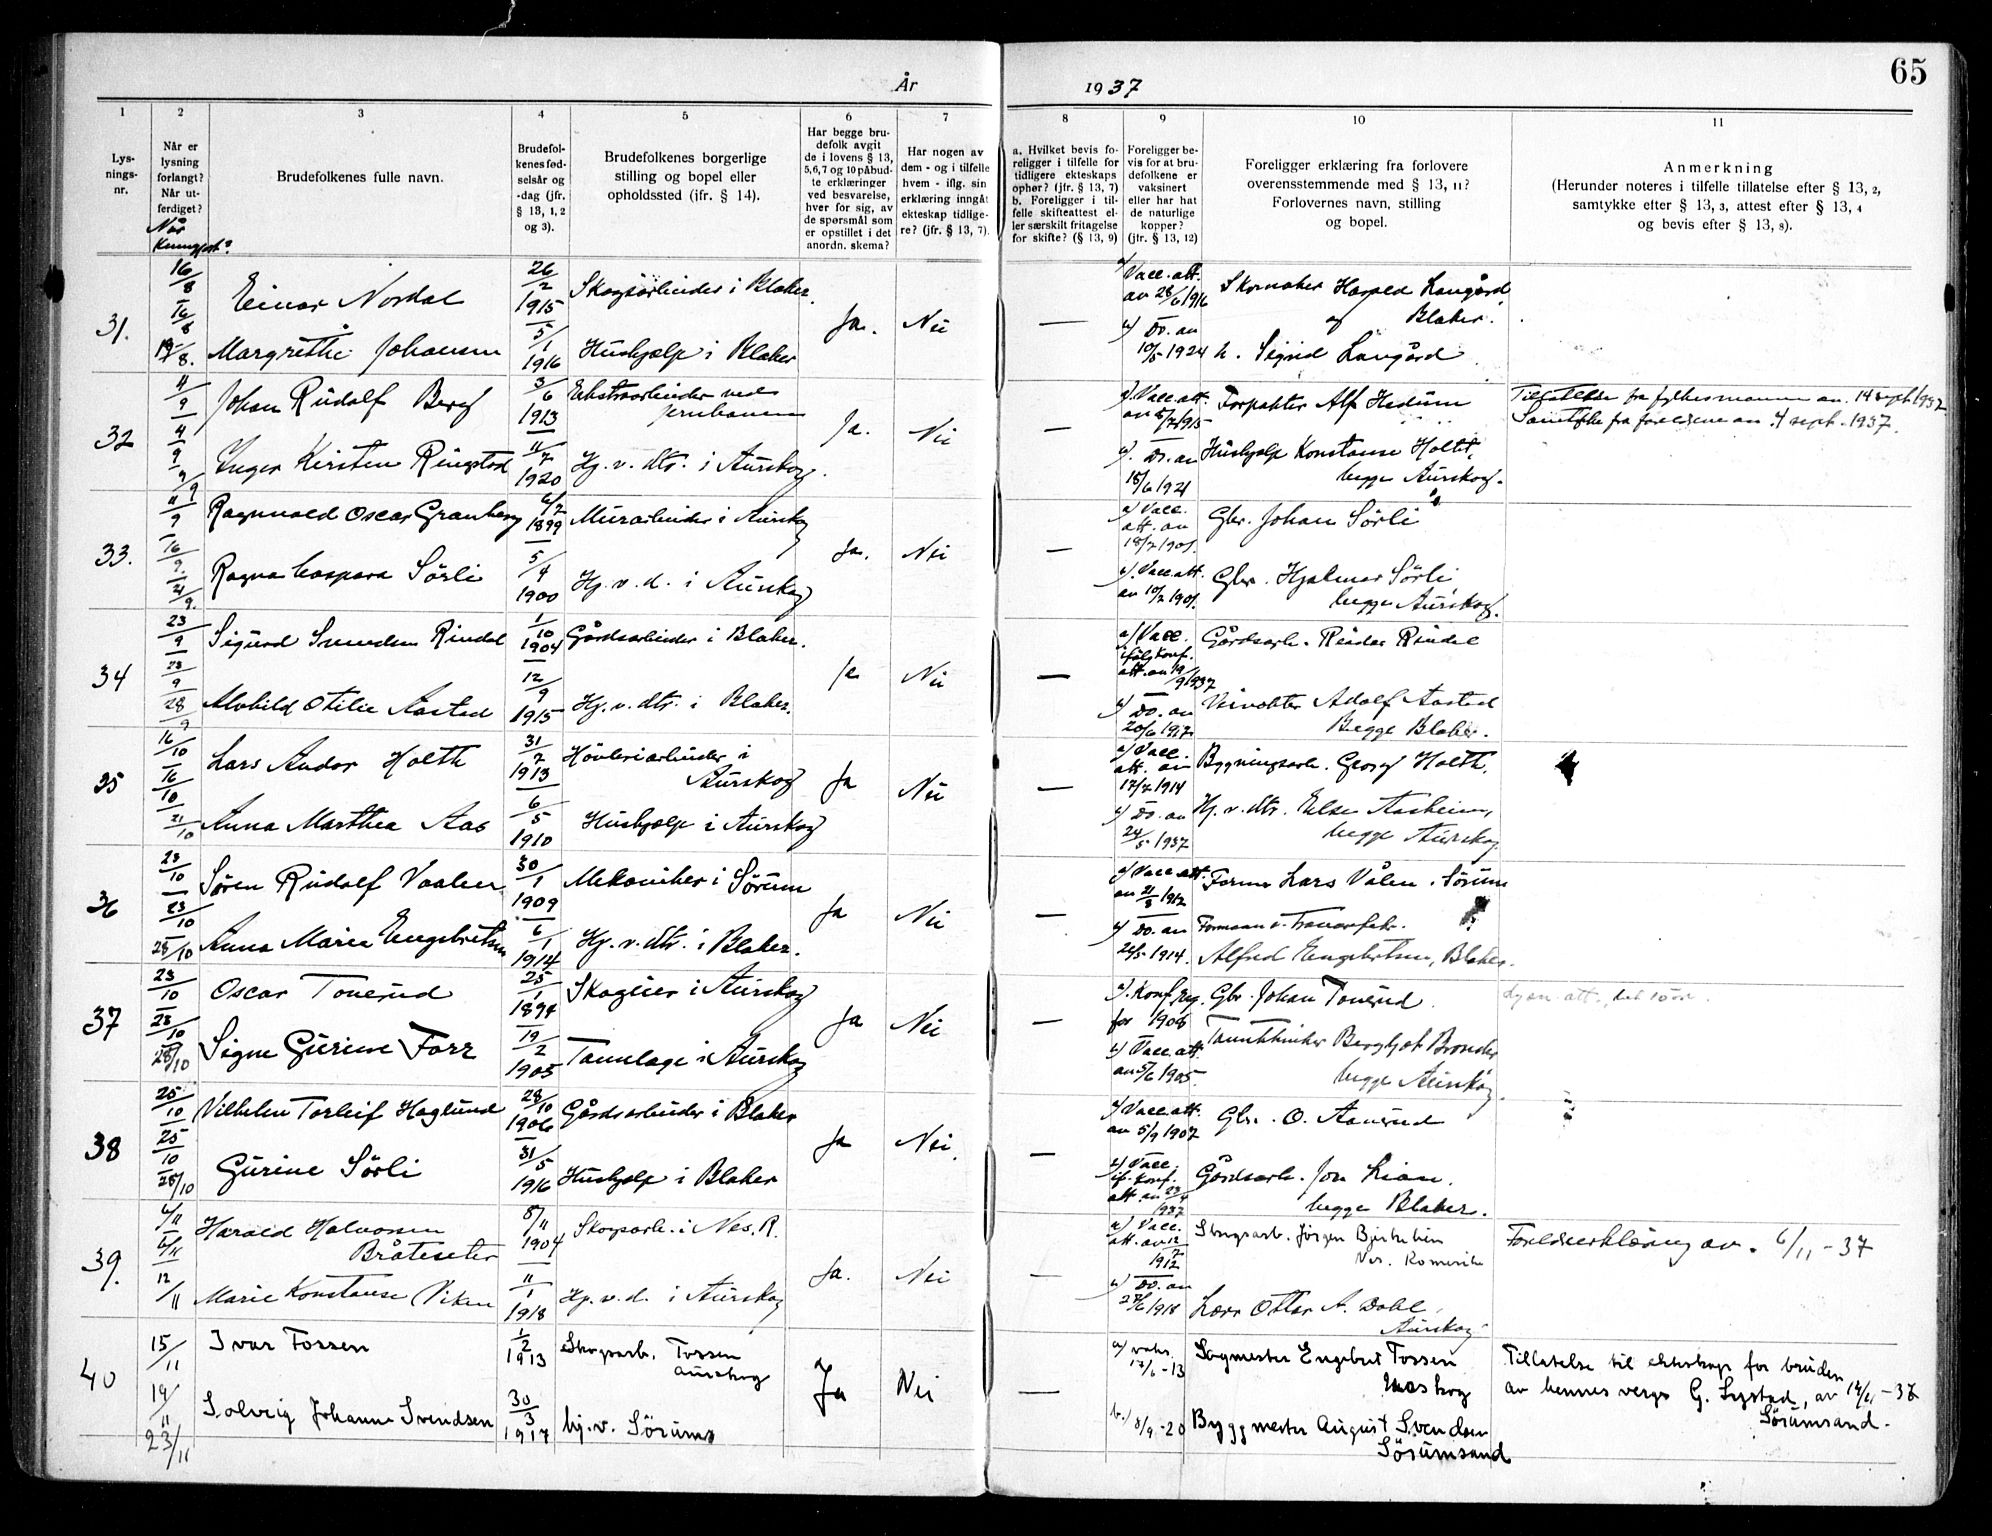 65
År 1937
1
2
3
4
5
6
7
8
9
10
11
Lys-
nings-
nr.
Når er
lysning
forlangt?
Når ut-
ferdiget?
Når
Kunngjort?
Brudefolkenes fulle navn.
Brudefol-
kenes fød-
selsår og
-dag (jfr.
§ 13, 1, 2
og 3).
Brudefolkenes borgerlige
stilling og bopel eller
opholdssted (jfr. § 14).
Har begge bru-
defolk avgit
de i lovens § 13,
5, 6, 7 og 10 påbud-
te erklæringer
ved besvarelse,
hver for sig, av
de spørsmål som
er opstillet i det
anordn. skema?
Har nogen av
dem - og i tilfelle
hvem - iflg. sin
erklæring inngåt
ekteskap tidlige-
re? (jfr. § 13, 7).
a. Hvilket bevis fo-
religger i tilfelle for
tidligere ekteskaps
ophør? (jfr. § 13, 7)
b. Foreligger i til-
felle skifteattest el-
ler særskilt fritagelse
for skifte? (§ 13, 9)
Foreligger be-
vis for at bru-
defolkene er
vaksinert
eller har hat
de naturlige
kopper?
(jfr. § 13, 12)
Foreligger erklæring fra forlovere
overensstemmende med § 13, 11?
Forlovernes navn, stilling
og bopel.
Anmerkning
(Herunder noteres i tilfelle tillatelse efter § 13, 2,
samtykke efter § 13, 3, attest efter § 13, 4
og bevis efter § 13, 8).
31.
16/8
16/8
19/8.
Einar Nordal
26/2 1915
Skogsarbeider i Blaker.
Ja. Nei —
a) Vacc. att. av 28/6 1916
Skomaker Harald Langård
af Blaker.
Margrethe Johansen
5/1 1916
Hushjælp i Blaker
b) Do. an 10/5 1924
h. Sigrid Langård
32
4/9
4/9
9/9
Johan Rudolf Berg
3/6 1913
Ekstraarbeider ved
jernbanen
Ja. Nei —
a). Vacc. att.
Forpakter Alf Hedum
Tillatelse fra fylkesmannen an. 14 sept. 1937
Samtykke fra foreldrene an. 4 sept. 1937.
Inger Kirsten Ringstad
11/7 1920
Hj. v. dtr. i Aurskog.
b). Do. an 18/6 1921
Hushjælp Konstanse Holtet,
begge Aurskog.
33.
11/9
16/9.
21/9.
Ragnvald Oscar Granberg
6/2 1899
Murarbeider i Aurskog
Ja. Nei —
a) Vacc. att. an 18/7 1901.
Gbr. Johan Sörli
Ragna Caspara Sörli
5/4 1900
Hj. v. d. i Aurskog
b). Vacc. att. an 10/7 1901.
Gbr. Hjalmar Sörli
begge Aurskog.
34
23/9
23/9
28/9
Sigurd Rindal
1/10 1904
Gårdsarbeider i Blaker.
Ja Nei —
a) Vacc. ifölg konf. att. an 19/9 1937
Gårdsarb. Reidar Rindal
Alvhild Otilie Aastad
12/9 1915
Hj. v. dtr. i Blaker.
b) Do. an 20/6 1917
Veivokter Adolf Aastad
Begge Blaker.
35
16/10
16/10
21/10
Lars Andor Holth
31/7 1913
Hövleriarbeider i
Aurskog
Ja Nei —
a) Vacc. att. an 17/7 1914
Bygningsarb. Georg Holth,
Anna Marthea Aas
6/5 1910
Hushjælp i Aurskog
b) Do. an 24/5 1937
Hj. v. dtr. Else Aasheim,
begge Aurskog
36
23/10
23/10
28/10
Søren Rudolf Vaalen
30/1 1909
Mekaniker i Sörum
Ja Nei —
a) Vacc. att. an 21/8 1912
Lars Vålen, Sörum
Anna Marie Engebretsen
6/1 1914
Hj. v. dtr. i Blaker.
b) Do. an 1914.
Formann v.
Alfred Engebretsen, Blaker.
37
23/10
23/10
28/10
Oscar Tonerud
25/1
Skogeier i Aurskog
Ja Nei —
a). Konf. reg. for 1908
Gbr. Johan Tonerud.
Signe Gurine Forr
19/2 1905
Tannlæge i Aurskog
b) Vacc. att. an 5/6 1905.
Tanntekniker
begge Aurskog.
38
25/10
25/10
28/10
Vilhelm Torleif Haglund
28/10 1906
Gårdsarbeider i Blaker
Ja Nei. —
a) Vacc. att. an 5/9 1907
Gbr. O. Aanerud
Gurine Sörli
31/5 1916
Hushjelp i Blaker
b) Vacc. if. konf. att. an 23/4 1937
Gårdsarb. Jon Lian.
begge Blaker.
39.
6/11
6/11
12/11
Harald Halvorsen
Bråteseter
8/11 1904
Skogsarb. i Nes. R.
Ja. Nei —
a) Vacc. att. an 12/7 1912
Skogsarb. Jörgen
Nes. Romerike
Foreldreerklæring av. 6/11 - 37
Marie Konstanse Viken
11/1 1918
Hj. v. d. i Aurskog
b) Do. an 1918
Lærer Ottar A. Dahl,
Aurskog
40
15/11
19/11
23/11
Ivar Fossen
1/2 1913
Skogsarb. Fossen
Aurskog
Ja Nei —
a) vaks. 17/6 - 13
Sagmester Engebret Fossen
Aurskog
Tillatelse til ekteskap for bruden
av hennes verge G. Systad, av - 37
Sörumsand.
Solveig Johanne Svendsen
30/3 1917
hj. v. Sörum
b.) 8/9 - 20
Byggmester August Svendsen
Sörumsand